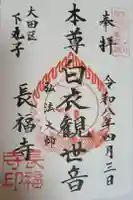 奉拝
令和年四月三日
本尊白衣観世音
弘法大師
大田区
下丸子
長福寺
長福
寺印